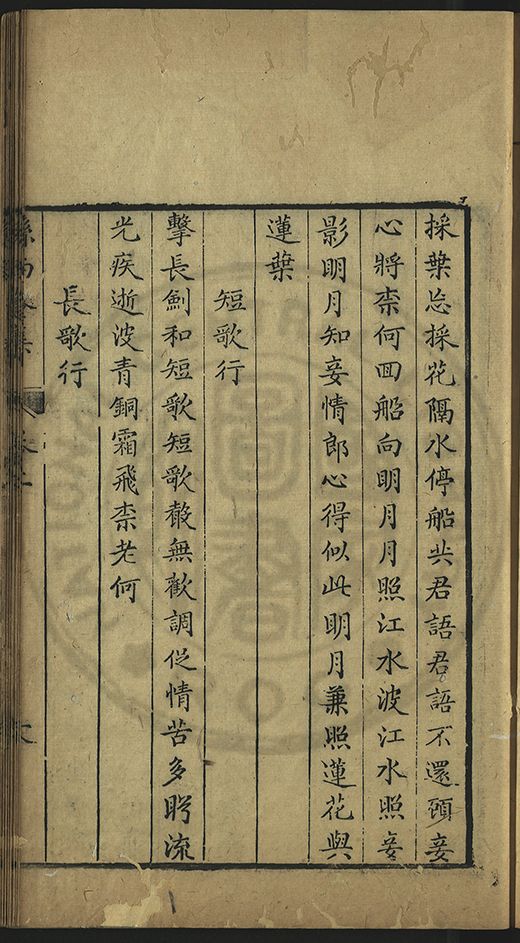 採葉忘採花隔水停船共君語君語不還頭妾
心將柰何回船向明月月照江水波江水照妾
影明月知妾情郎心得似此明月兼照蓮花與
蓮葉
短歌行
擊長劍和短歌短歌殽無歡調促情苦多眄流
光疾逝波青銅霜飛柰老何
長歌行